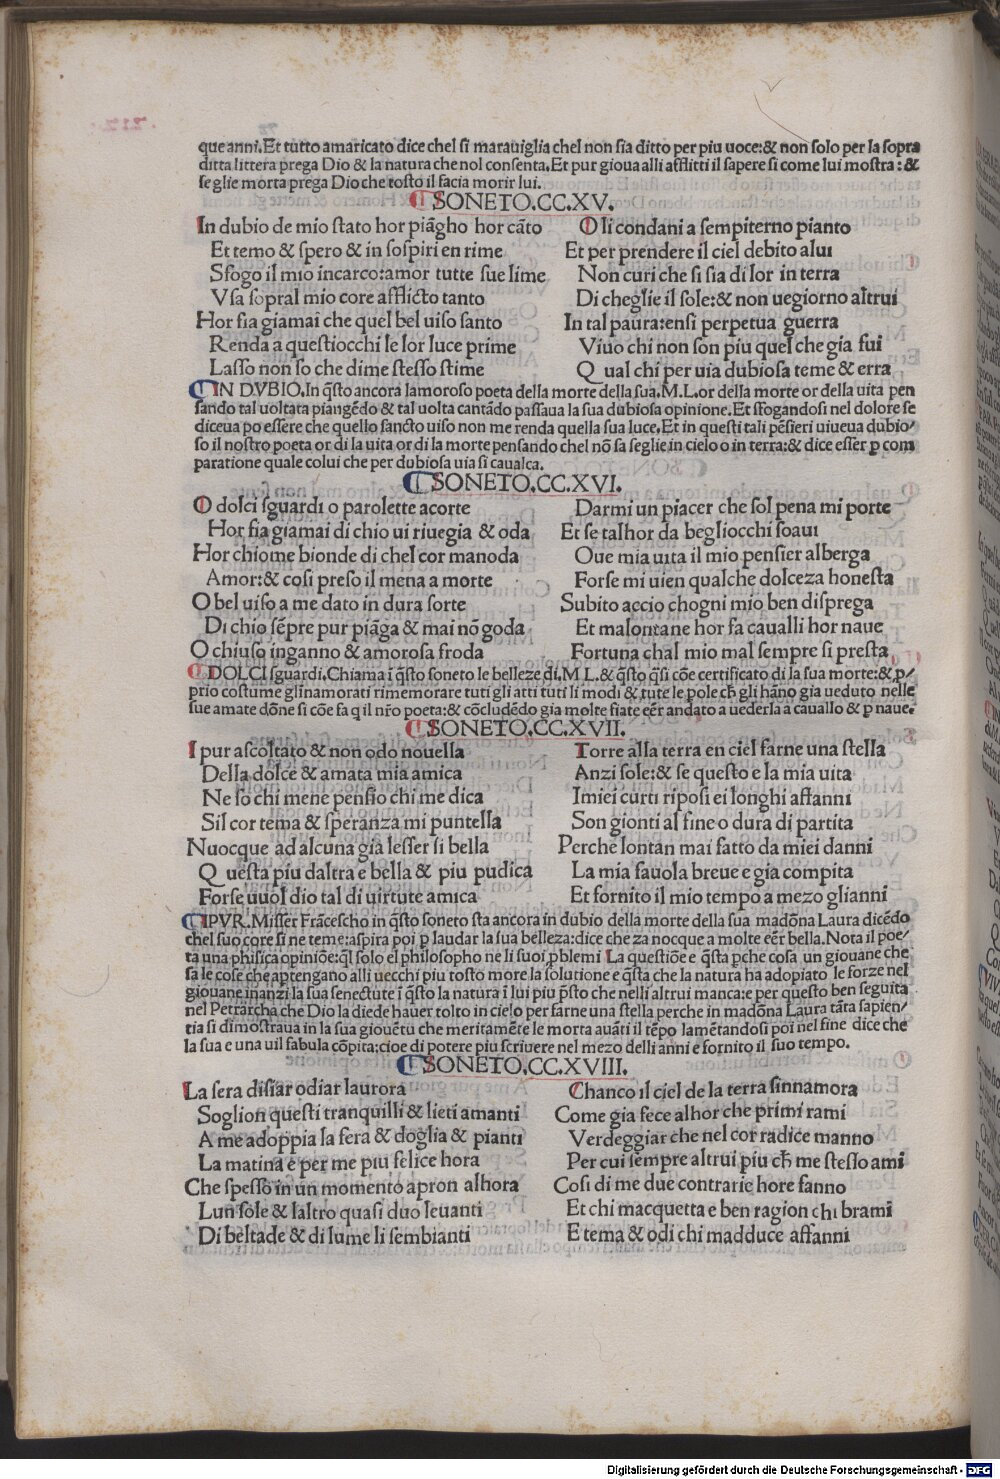 que anni. Et tutto amaricato dice chel si marauiglia chel non sia ditto per piu uoce: & non solo per la sopra
ditta littera prega Dio & la natura che nol consenta. Et pur gioua alli afflitti il sapere si come lui mostra: &
se glie morta prega Dio che tosto il facia morir lui.
SONETO.CC.XV.
In dubio de mio stato hor piãgho hor cãto
Et temo & spero & in sospiri en rime
Sfogo il mio incarco: amor tutte sue lime
Vsa sopral mio core afflicto tanto
Hor fia giamai che quel bel uiso santo
Renda a questiocchi le lor luce prime
Lasso non so che dime stesso stime
O li condani a sempiterno pianto
Et per prendere il ciel debito alui
Non curi che si sia di lor in terra
Di cheglie il sole: & non uegiorno altrui
In tal paura: ensi perpetua guerra
Viuo chi non son piu quel che gia fui
Qual chi per uia dubiosa teme & erra
IN DVBIO. In q̃sto ancora lamoroso poeta della morte della sua. M. L. or della morte or della uita pen
sando tal uoltata piangẽdo & tal uolta cantãdo passaua la sua dubiosa opinione. Et sfogandosi nel dolore se
diceua po essere che quello sancto uiso non me renda quella sua luce. Et in questi tali pẽsieri uiueua dubio/
so il nostro poeta or di la uita or di la morte pensando chel nõ sa seglie in cielo o in terra: & dice esser ꝑ com
paratione quale colui che per dubiosa uia si caualca.
SONETO.CC.XVI.
O dolci sguardi o parolette acorte
Hor fia giamai di chio ui riuegia & oda
Hor chiome bionde di chel cor manoda
Amor: & cosi preso il mena a morte
O bel uiso a me dato in dura sorte
Di chio sẽpre pur piãga & mai nõ goda
O chiuso inganno & amorosa froda
Darmi un piacer che sol pena mi porte
Et se talhor da begliocchi soaui
Oue mia uita il mio pensier alberga
Forse mi uien qualche dolceza honesta
Subito accio chogni mio ben disprega
Et malontane hor fa caualli hor naue
Fortuna chal mio mal sempre si presta
DOLCI sguardi. Chiama ĩ q̃sto soneto le belleze di. M L. & q̃sto q̃si cõe certificato di la sua morte: & ꝓ/
prio costume gl innamorati rimemorare tuti gli atti tuti li modi & tute le ꝑole ch̃ gli hãno gia ueduto nelle
sue amate dõne si cõe fa q il nr̃o poeta: & cõcludẽdo gia molte fiate eẽr andato a uederla a cauallo & ꝑ naue.
SONETO.CC.XVII.
I pur ascoltato & non odo nouella
Della dolce & amata mia amica
Ne so chi mene pensio chi me dica
Sil cor tema & speranza mi puntella
Nuocque ad alcuna gia lesser si bella
Questa piu daltra e bella & piu pudica
Forse uuol dio tal di uirtute amica
Torre alla terra en ciel farne una stella
Anzi sole: & se questo e la mia uita
Imiei curti riposi ei longhi affanni
Son gionti al fine o dura di partita
Perche lontan mai fatto da miei danni
La mia fauola breue e gia compita
Et fornito il mio tempo a mezo glianni
IPVR. Misser Frãcescho in q̃sto soneto sta ancora in dubio della morte della sua madõna Laura dicẽdo
chel suo core si ne teme: aspira poi ꝑ laudar la sua belleza: dice che za nocque a molte eẽr bella. Nota il poe/
ta una phisica opiniõe: q̃l solo el philosopho ne li suoi ꝓblemi La questiõe e q̃sta ꝑche cosa un giouane che
sa le cose che aptengano alli uecchi piu tosto more la solutione e q̃sta che la natura ha adopiato le forze nel
giouane inanzi la sua senectute ĩ q̃sto la natura ĩ lui piu p̃sto che nelli altrui manca: e per questo ben seguita
nel Petrarcha che Dio la diede hauer tolto in cielo per farne una stella perche in madõna Laura tãta sapien/
tia si dimostraua in la sua giouẽtu che meritamẽte le morta auãti il tẽpo lamẽtandosi poi nel fine dice che
la sua e una uil fabula cõpita: cioe di potere piu scriuere nel mezo delli anni e fornito il suo tempo.
SONETO.CC.XVIII.
La sera disiar odiar laurora
Soglion questi tranquilli & lieti amanti
A me adoppia la sera & doglia & pianti
La matina e per me piu felice hora
Che spesso in un momento apron alhora
Lun sole & laltro quasi duo leuanti
Di beltade & di lume li sembianti
Chanco il ciel de la terra sinnamora
Come gia fece alhor che primi rami
Verdeggiar che nel cor radice manno
Per cui sempre altrui piu ch̃ me stesso ami
Cosi di me due contrarie hore fanno
Et chi macquetta e ben ragion chi brami
E tema & odi chi madduce affanni
Digitalisierung gefördert durch die Deutsche Forschungsgemeinschaft - DFG